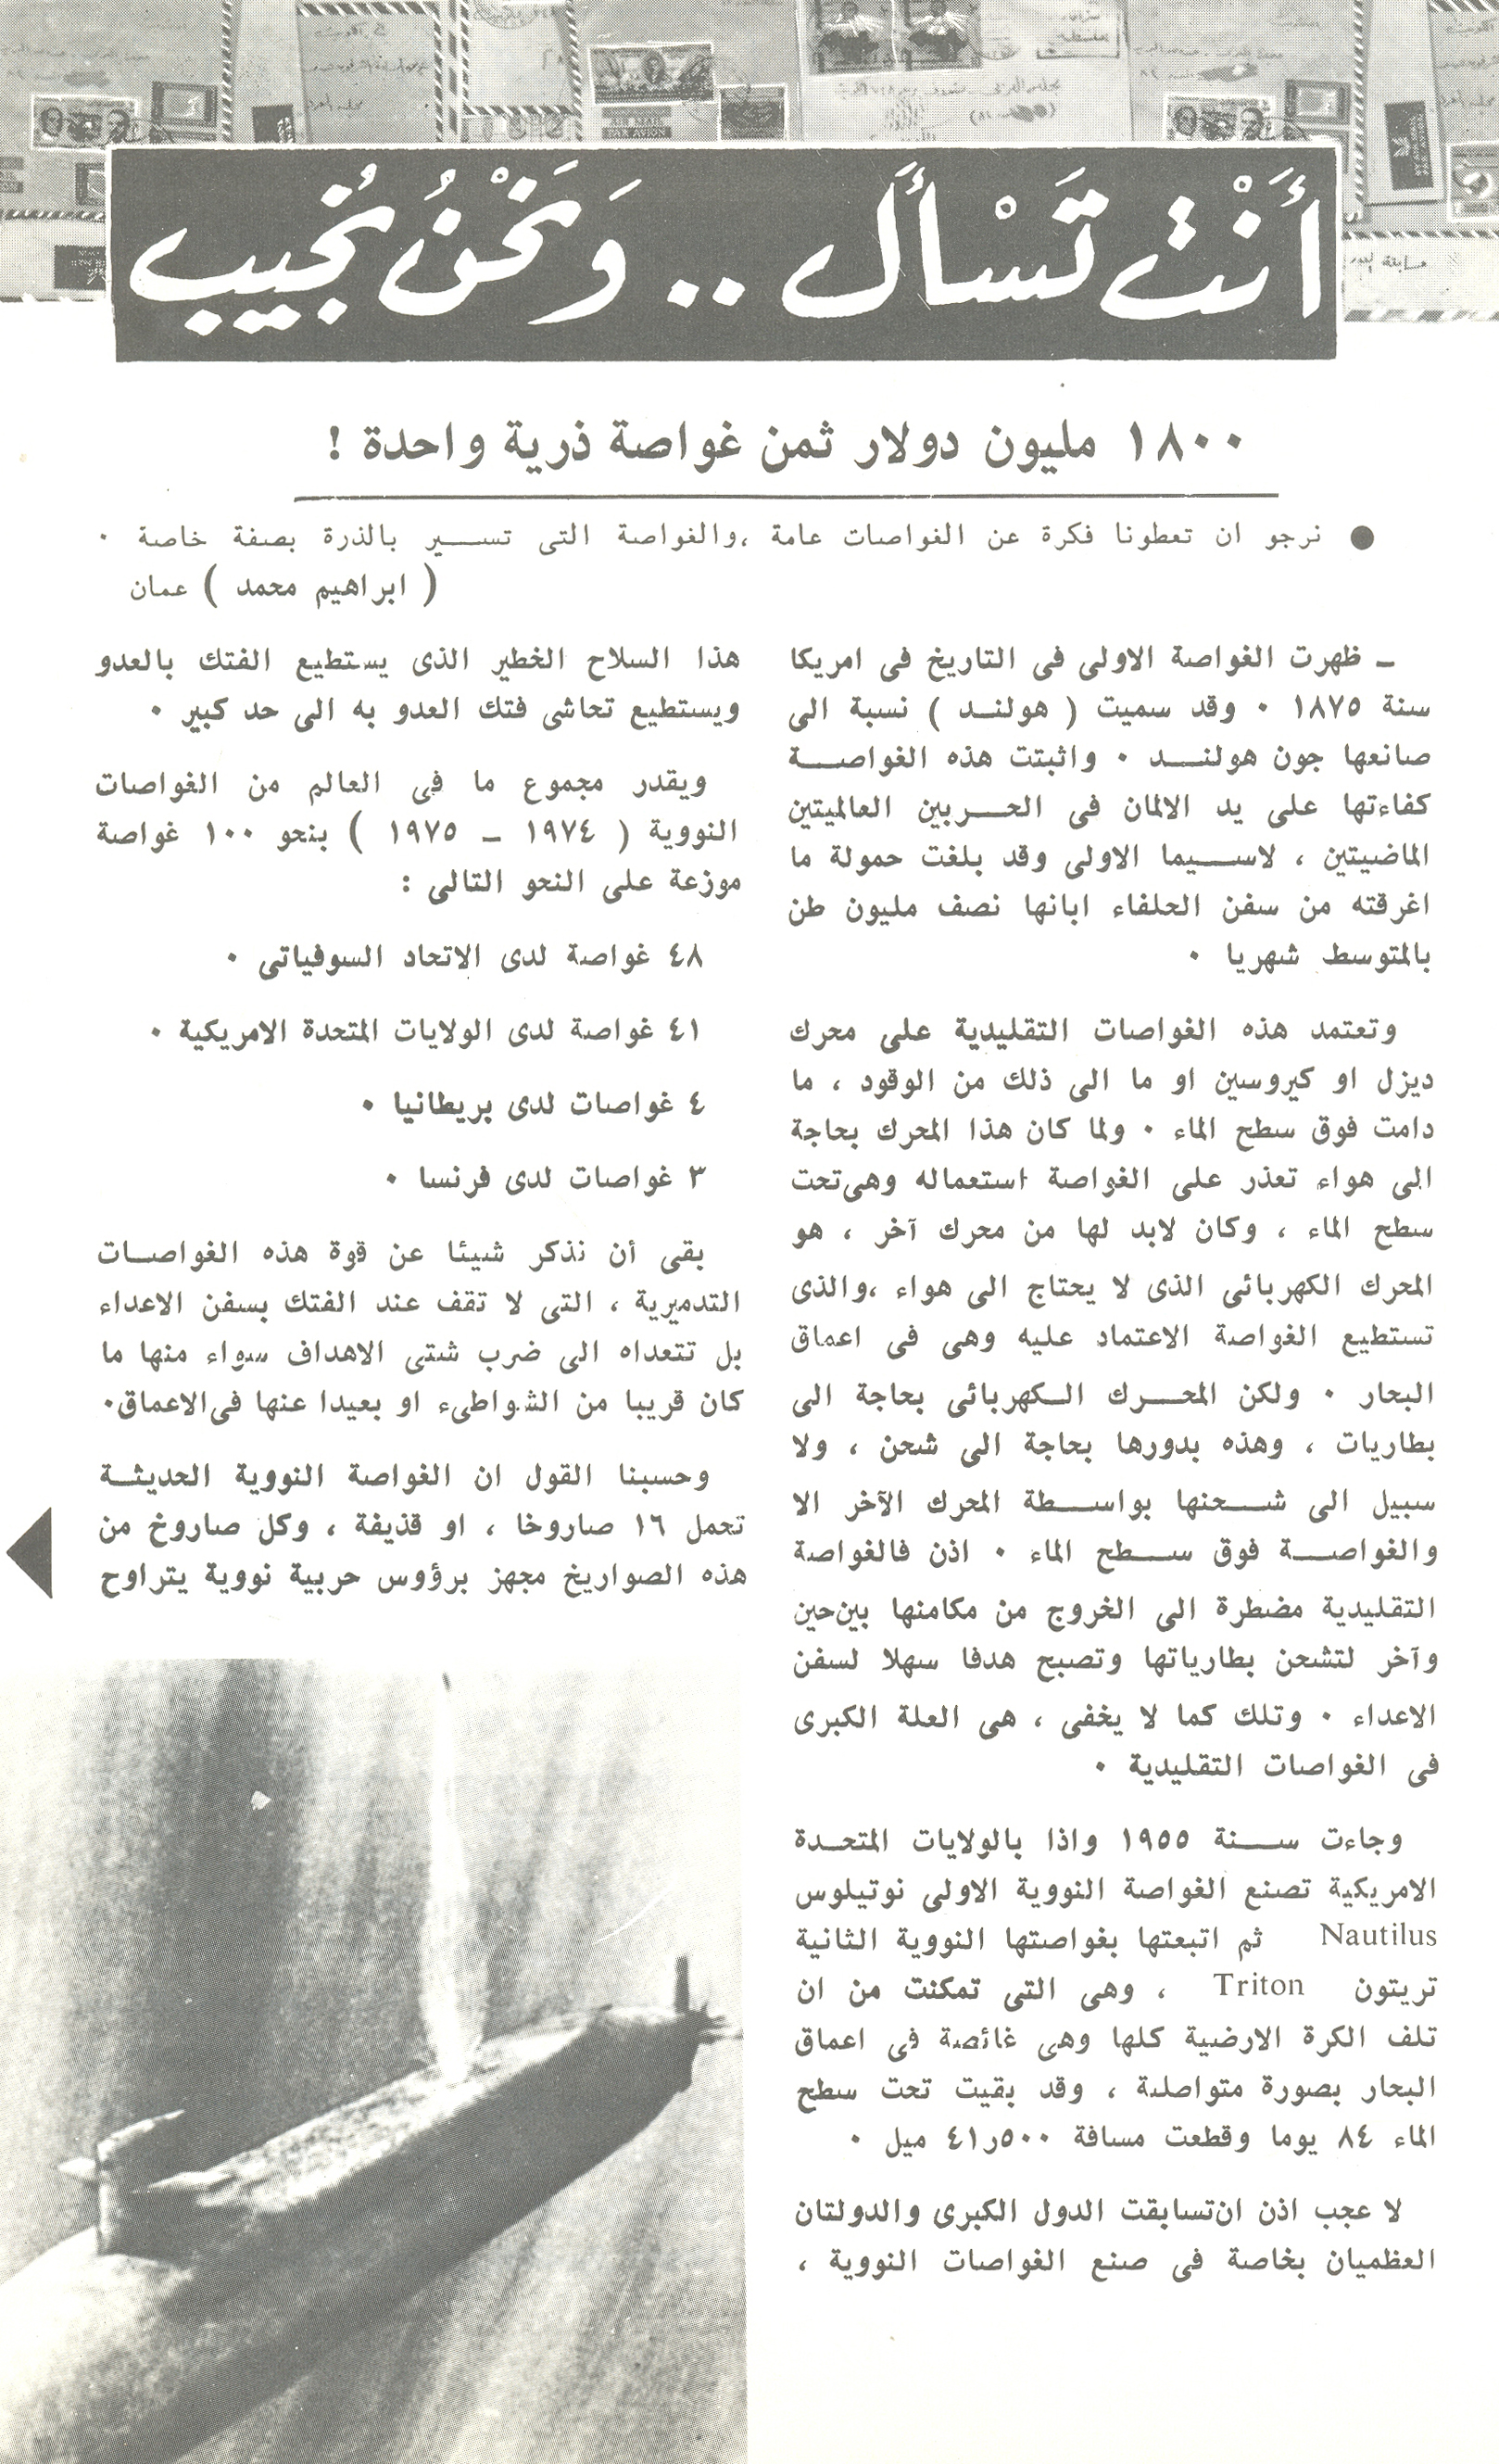 أَنْتَ تَسْأَل .. وَنَحْنُ نُجِيب
١٨٠٠ مليون دولار ثمن غواصة ذرية واحدة !
● نرجو ان تعطونا فكرة عن الغواصات عامة ،والغواصة التى تســير بالذرة بصفة خاصة ٠
( ابراهيم محمد ) عمان
ـ ظهرت الغواصة الاولى فى التاريخ فى امريكا
سنة ١٨٧٥ ٠ وقد سميت ( هولنــد ) نسبة الى
صانعها جون هولنــد ٠ واثبتت هذه الغواصــة
كفاءتها على يد الالمان فى الحــربين العالميتين
الماضيتين ، لاســيما الاولى وقد بلغت حمولة ما
اغرقته من سفن الحلفاء ابانها نصف مليون طن
بالمتوسط شهريا ٠
وتعتمد هذه الغواصات التقليدية على محرك
ديزل او كيروسين او ما الى ذلك من الوقود ، ما
دامت فوق سطح الماء ٠ ولما كان هذا المحرك بحاجة
الى هواء تعذر على الغواصة استعماله وهى تحت
سطح الماء ، وكان لابد لها من محرك آخر ، هو
المحرك الكهربائى الذى لا يحتاج الى هواء ،والذى
تستطيع الغواصة الاعتماد عليه وهى فى اعماق
البحار ٠ ولكن المحــرك الــكهربائى بحاجة الى
بطاريات ، وهذه بدورها بحاجة الى شحن ، ولا
سبيل الى شــحنها بواســطة المحرك الآخر الا
والغواصــة فوق ســطح الماء ٠ اذن فالغواصة
التقليدية مضطرة الى الخروج من مكامنها بين حين
وآخر لتشحن بطارياتها وتصبح هدفا سهلا لسفن
الاعداء ٠ وتلك كما لا يخفى ، هى العلة الكبرى
فى الغواصات التقليدية ٠
وجاءت ســنة ١٩٥٥ واذا بالولايات المتحــدة
الامريكية تصنع الغواصة النووية الاولى نوتيلوس
Nautilus ثم اتبعتها بغواصتها النووية الثانية
تريتون Triton ، وهى التى تمكنت من ان
تلف الكرة الارضية كلها وهى غائصة فى اعماق
البحار بصورة متواصلة ، وقد بقيت تحت سطح
الماء ٨٤ يوما وقطعت مسافة ٥٠٠ر٤١ ميل ٠
لا عجب اذن ان تسابقت الدول الكبرى والدولتان
العظميان بخاصة فى صنع الغواصات النووية ،
هذا السلاح الخطير الذى يستطيع الفتك بالعدو
ويستطيع تحاشى فتك العدو به الى حد كبير ٠
ويقدر مجموع ما فى العالم من الغواصات
النووية ( ١٩٧٤ ـ ١٩٧٥ ) بنحو ١٠٠ غواصة
موزعة على النحو التالى :
٤٨ غواصة لدى الاتحاد السوفياتى ٠
٤١ غواصة لدى الولايات المتحدة الامريكية ٠
٤ غواصات لدى بريطانيا ٠
٣ غواصات لدى فرنسا ٠
بقى أن نذكر شيئا عن قوة هذه الغواصــات
التدميرية ، التى لا تقف عند الفتك بسفن الاعداء
بل تتعداه الى ضرب شتى الاهداف سواء منها ما
كان قريبا من الشواطىء او بعيدا عنها فى الاعماق٠
وحسبنا القول ان الغواصة النووية الحديثــة
تحمل ١٦ صاروخا ، او قذيفة ، وكل صاروخ من
هذه الصواريخ مجهز برؤوس حربية نووية يتراوح